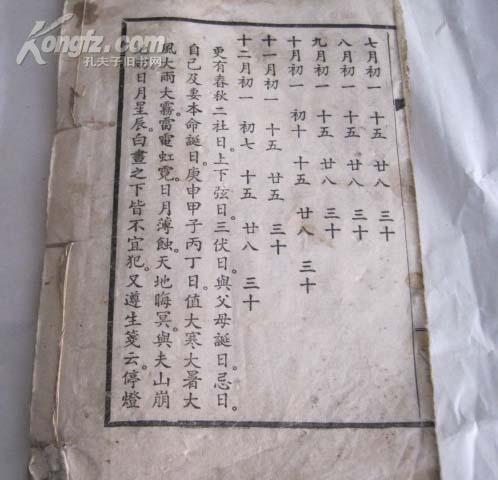 七月初一 十五 廿八 三十
八月初一 十五 廿八 三十
九月初一 十五 廿八 三十
十月初一 初十 十五 廿八 三十
十一月初一 十五 廿五 三十
十二月初一 初七 十五 廿八 三十
更有春秋二社日。上下弦日。三伏日。與父母誕日。忌日。
自己及妻本命誕日。庚申甲子丙丁日。值大寒大暑大
風大雨大霧。雷電虹霓。日月薄蝕。天地晦冥。與夫山崩
日月星辰。白晝之下皆不宜犯。又遵生箋云。停燈
Kongfz.com
孔夫子旧书网